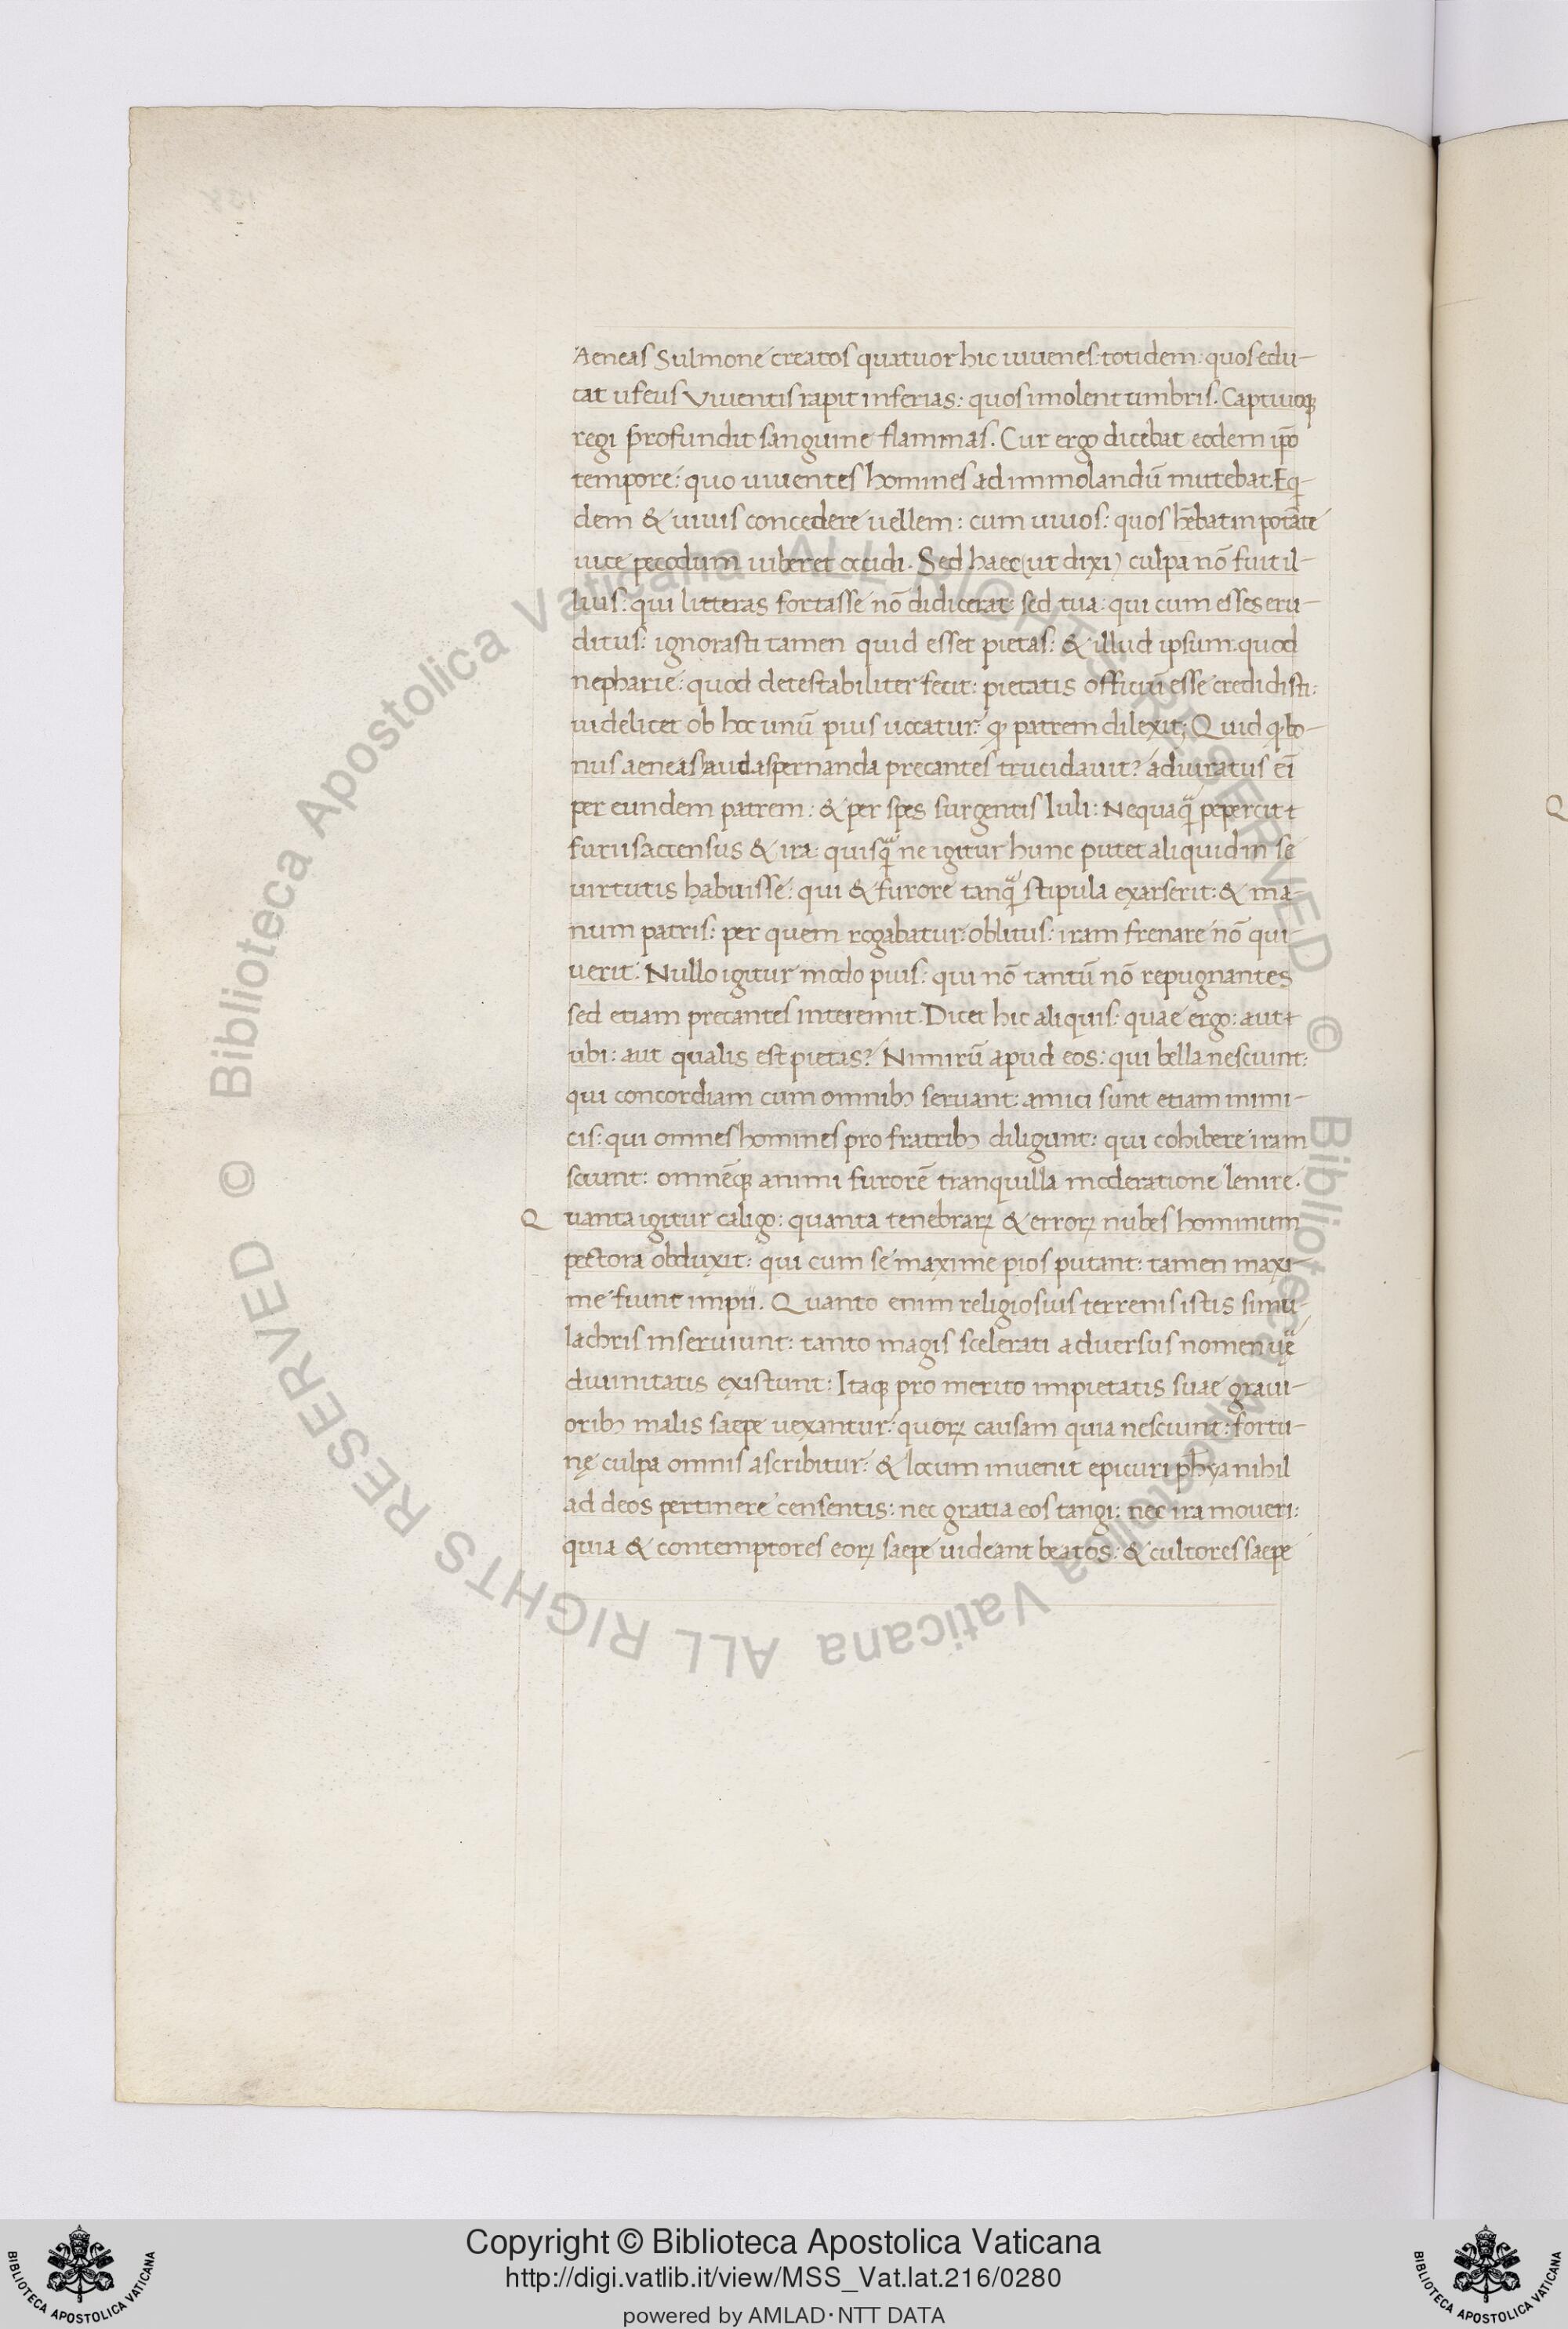 Aeneas Sulmone creatos quatuor hic iuuenes: totidem: quos edu-
cat ufeus Viuentis rapit inferias: quos imolent umbris. Captiuoq;
regi profundit sanguine flammas. Cur ergo dicebat eodem ip̄o
tempore: quo uiuentes homines ad immolandū mittebat. Eq̇-
dem & uiuis concedere uellem: cum uiuos: quos hēbat in potāte
uice pecodum iuberet occidi. Sed haec (ut dixi) culpa nō fuit il-
lius: qui litteras fortasse nō didicerat: sed tua: qui cum esses eru-
ditus: ignorasti tamen quid esset pietas: & illud ipsum. quod
nepharie: quod detestabiliter fecit: pietatis officiū esse credidisti:
uidelicet ob hoc unū pius uocatur: ꝙ patrem dilexit; Quid ꝙ bo-
nus aeneas haud aspernanda precantes trucidauit? adiuratus eī
per eundem patrem: & per spes surgentis Iuli: Nequaq̄ pepercit
furiis accensus & ira: quisq̄ ne igitur hunc putet aliquid in se
uirtutis habuisse: qui & furore tanq̄ stipula exarserit: & ma-
num patris: per quem rogabatur: oblitus: iram frenare nō qui-
uerit. Nullo igitur modo pius: qui nō tantū nō repugnantes
sed etiam precantes interemit. Dicet hic aliquis: quae ergo: aut
ubi: aut qualis est pietas? Nimirū apud eos: qui bella nesciunt:
qui concordiam cum omnibꝫ seruant: amici sunt etiam inimi-
cis: qui omnes homines pro fratribꝫ diligunt: qui cohibere iram
sciunt: omnēq; animi furorē tranquilla moderatione lenire.
Quanta igitur caligo: quanta tenebraꝝ & erroꝝ nubes hominum
pectora obduxit: qui cum se maxime pios putant: tamen maxi-
me fiunt impii. Quanto enim religiosius terrenis istis simu-
lachris inseruiunt: tanto magis scelerati aduersus nomen uę
diuinitatis existunt: Itaq; pro merito impietatis suae graui-
oribꝫ malis saepe uexantur: quoꝝ causam quia nesciunt: fortu-
nę culpa omnis ascribitur: & locum inuenit epicuri ph̄ya nihil
ad deos pertinere censentis: nec gratia eos tangi: nec ira moueri:
quia & contemptores eoꝝ saepe uideant beatos: & cultores saepe
Q
Copyright © Biblioteca Apostolica Vaticana
http://digi.vatlib.it/view/MSS_Vat.lat.216/0280
powered by AMLAD·NTT DATA
BIBLIOTECA APOSTOLICA VATICANA
BIBLIOTECA APOSTOLICA VATICANA
© Biblioteca Apostolica Vaticana ALL RIGHTS RESERVED © Biblioteca Apostolica Vaticana ALL RIGHTS RESERVED